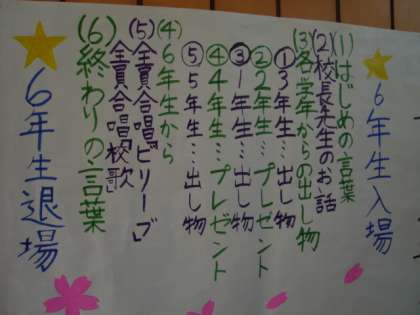 6年生入場
(1)はじめの言葉
(2)校長先生のお話
(3)各学年からの出し物
①3年生…出し物
②2年生…プレゼント
③1年生…出し物
④4年生…プレゼント
⑤5年生…出し物
(4)6年生から
(5)全員合唱「ビリーブ」
全員合唱「校歌」
(6)終わりの言葉
6年生退場